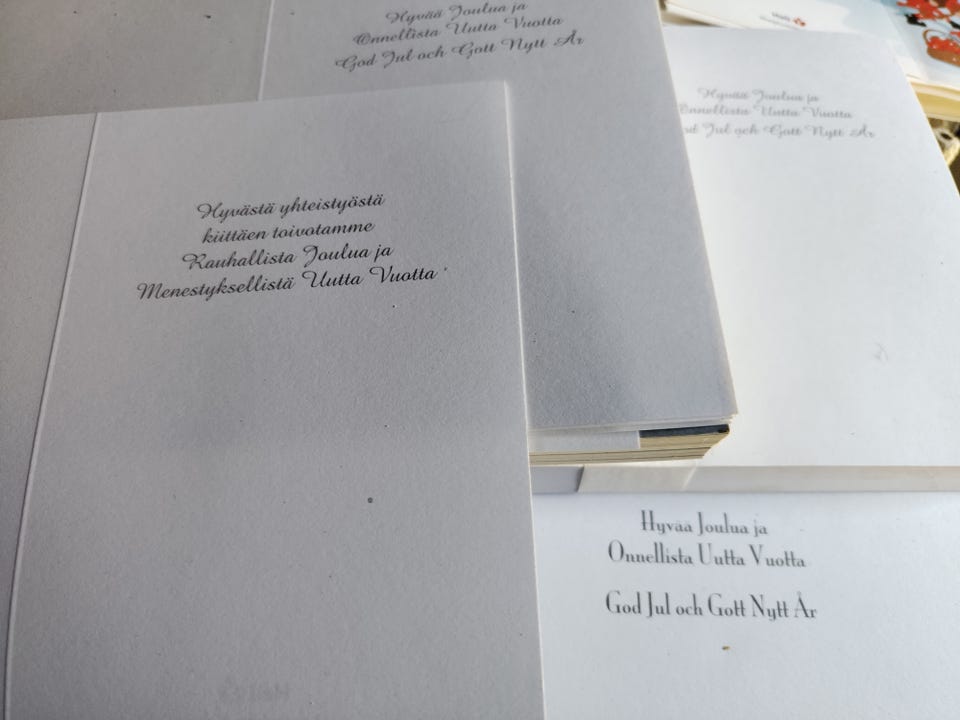 Hyvää Joulua ja
Onnellista Uutta Vuotta
God Jul och Gott Nytt År
Hyvää Joulua ja
Onnellista Uutta Vuotta
Jul och Gott Nytt År
Hyvästä yhteistyöstä
kiittäen toivotamme
Rauhallista Joulua ja
Menestyksellistä Uutta Vuotta
Hyvää Joulua ja
Onnellista Uutta Vuotta
God Jul och Gott Nytt År